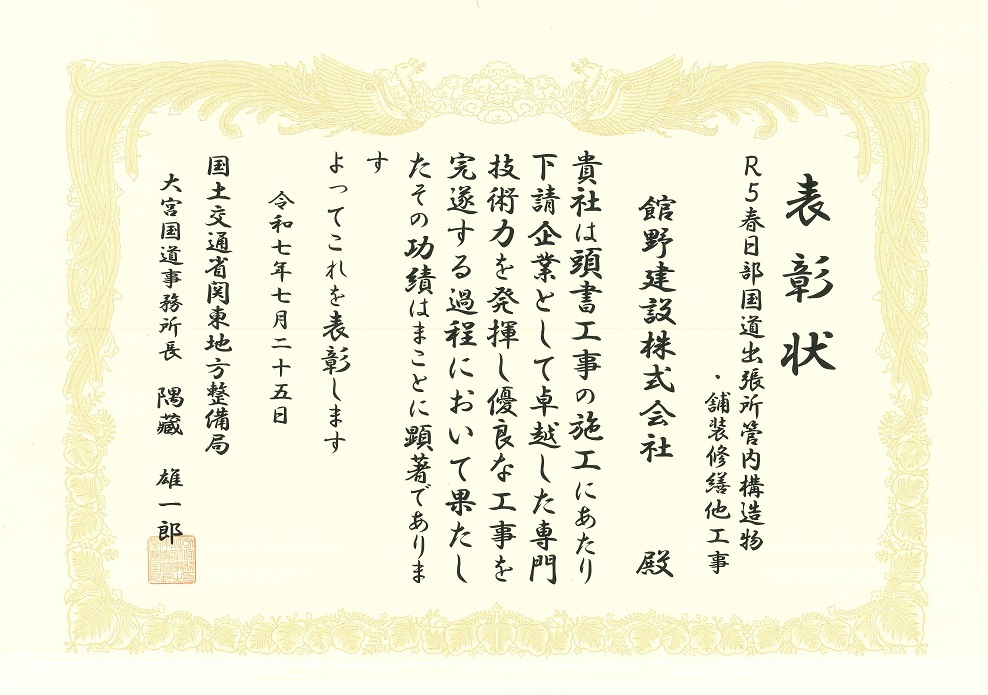 表彰状
R5春日部国道出張所管内構造物
・舗装修繕他工事
館野建設株式会社 殿
貴社は頭書工事の施工にあたり
下請企業として卓越した専門
技術力を発揮し優良な工事を
完遂する過程において果たし
たその功績はまことに顕著でありま
す
よってこれを表彰します
令和七年七月二十五日
国土交通省関東地方整備局
大宮国道事務所長 隅藏 雄一郎